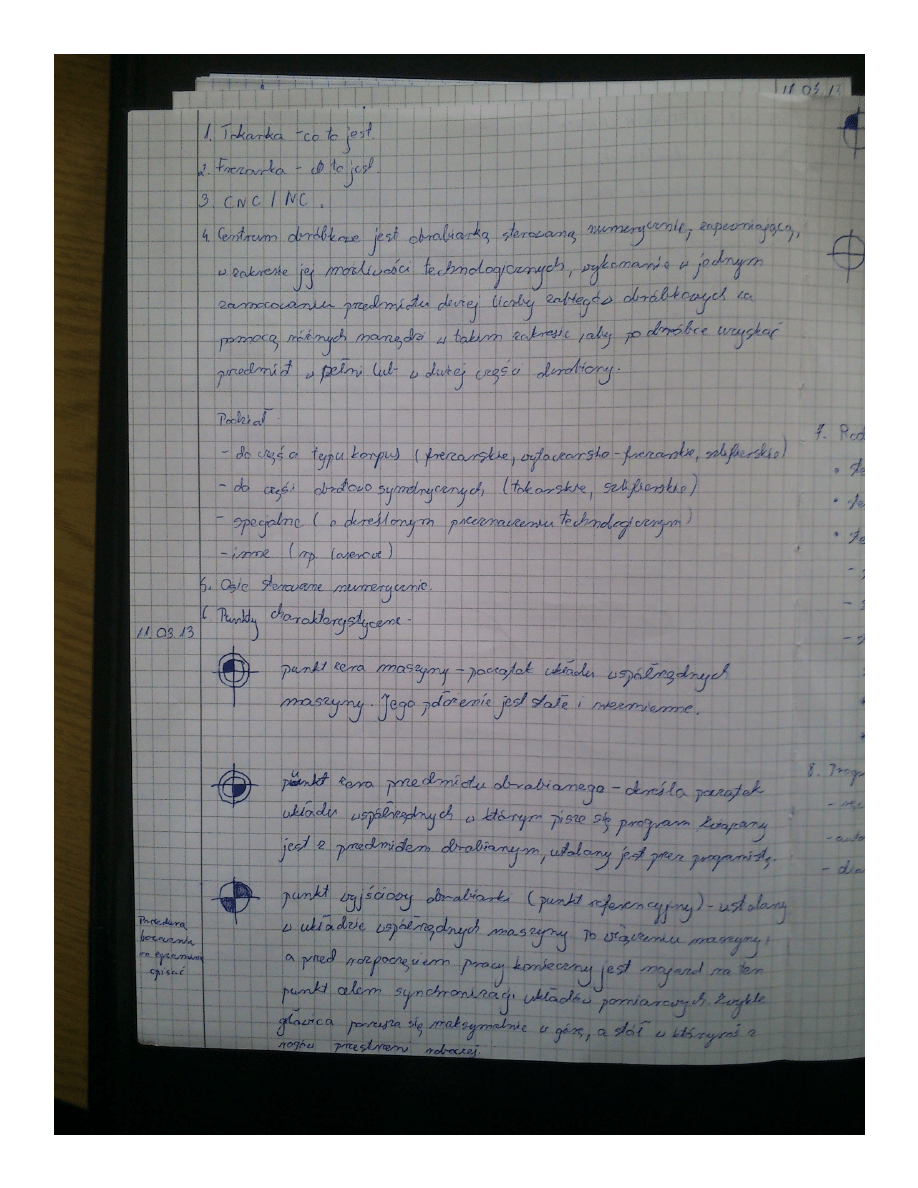 11.03.13
1. Tokarka - co to jest.
2. Frezarka - co to jest.
3. CNC / NC.
4. Centrum obróbkowe jest obrabiarką sterowaną numerycznie, zapewniającą,
w zakresie jej możliwości technologicznych, wykonanie w jednym
zamocowaniu przedmiotu dużej liczby zabiegów obróbkowych za
pomocą różnych narzędzi w takim zakresie, aby po obróbce uzyskać
przedmiot w pełni lub w dużej części obrobiony.
Podział
- do części typu korpus (frezarskie, wytaczarsko-frezarskie, szlifierskie)
- do części obrotowo symetrycznych (tokarskie, szlifierskie)
- specjalne (o określonym przeznaczeniu technologicznym)
- inne (np. laserowe)
5. Osie sterowane numerycznie.
6. Punkty charakterystyczne.
11.03.13
punkt zera maszyny - początek układu współrzędnych
maszyny. Jego położenie jest stałe i niezmienne.
punkt zera przedmiotu obrabianego - określa początek
układu współrzędnych w którym pisze się program związany
jest z przedmiotem obrabianym, ustalany jest przez programistę.
punkt wyjściowy obrabiarki (punkt referencyjny) - ustalany
w układzie współrzędnych maszyny. Po włączeniu maszyny,
a przed rozpoczęciem pracy konieczny jest najazd na ten
punkt celem synchronizacji układów pomiarowych. Zwykle
głowica porusza się maksymalnie w górę, a stół w którymś z
rogów przestrzeni roboczej.
Procedura
bazowania
na egzaminie
opisać
7.
8.